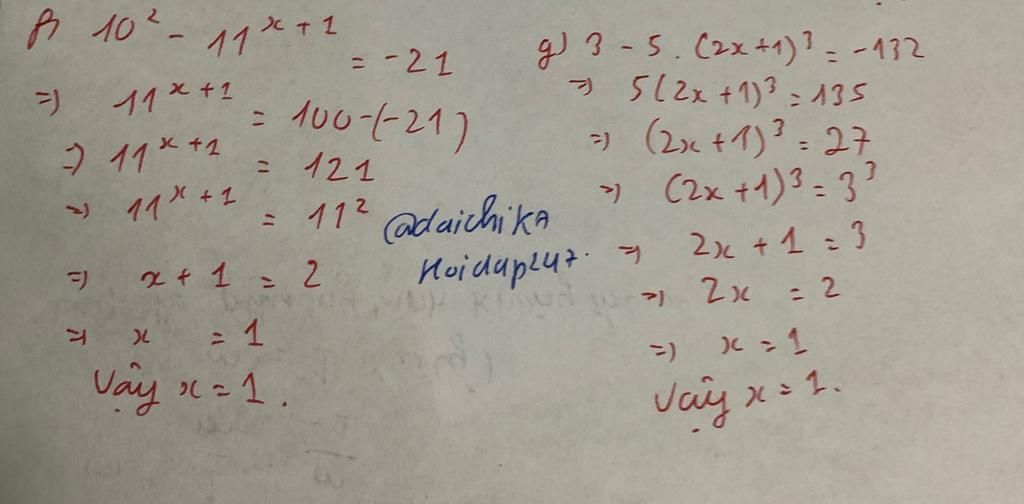 f) 10² - 11^{x+1} = -21
=> 11^{x+1} = 100-(-21)
=> 11^{x+1} = 121
=> 11^{x+1} = 11²
=> x + 1 = 2
=> x = 1
Vậy x = 1.
@daichika
Hoidap247.
g) 3 - 5 . (2x+1)³ = -132
=> 5(2x+1)³ = 135
=> (2x+1)³ = 27
=> (2x+1)³ = 3³
=> 2x + 1 = 3
=> 2x = 2
=> x = 1
Vậy x = 1.